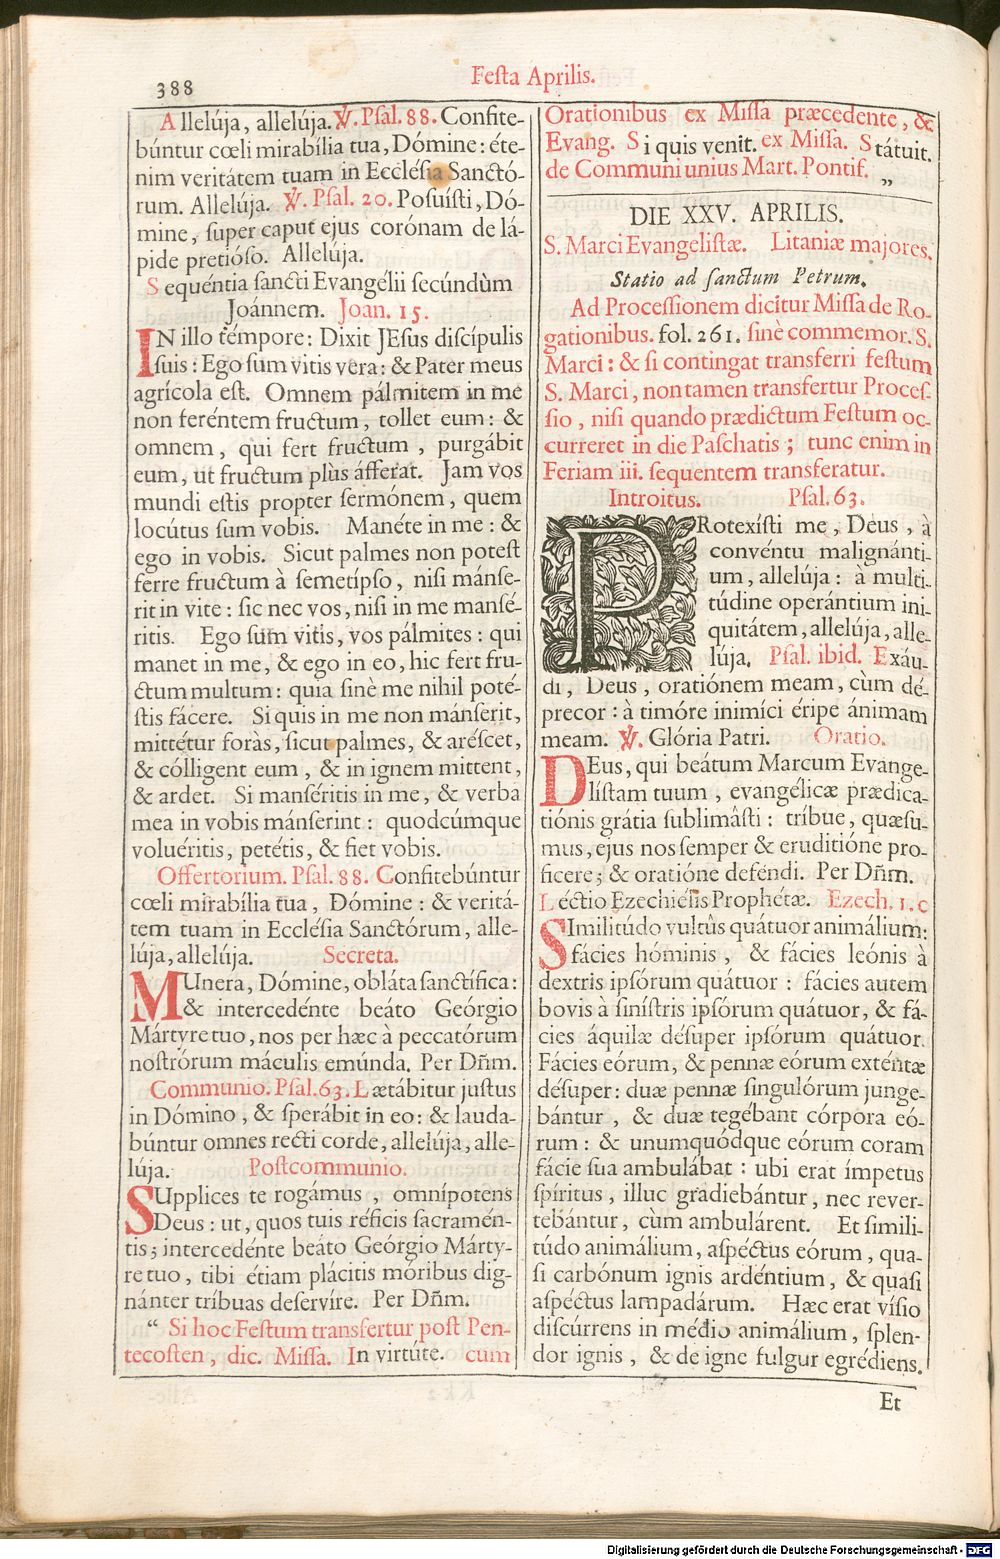 388
Festa Aprilis.
Allelúja, allelúja. ℣. Psal. 88. Confite-
búntur cœli mirabília tua, Dómine: éte-
nim veritátem tuam in Ecclésia Sanctó-
rum. Allelúja. ℣. Psal. 20. Posuísti, Dó-
mine, super caput ejus corónam de lá-
pide pretióso. Allelúja.
Sequéntia sancti Evangélii secúndùm
Joánnem. Joan. 15.
IN illo témpore: Dixit JEsus discípulis
suis: Ego sum vitis vera: & Pater meus
agrícola est. Omnem pálmitem in me
non feréntem fructum, tollet eum: &
omnem, qui fert fructum, purgábit
eum, ut fructum plùs áfferat. Jam vos
mundi estis propter sermónem, quem
locútus sum vobis. Manéte in me: &
ego in vobis. Sicut palmes non potest
ferre fructum à semetípso, nisi mánse-
rit in vite: sic nec vos, nisi in me mansé-
ritis. Ego sum vitis, vos pálmites: qui
manet in me, & ego in eo, hic fert fru-
ctum multum: quia sinè me nihil poté-
stis fácere. Si quis in me non mánserit,
mittétur foràs, sicut palmes, & aréscet,
& cólligent eum, & in ignem mittent,
& ardet. Si manséritis in me, & verba
mea in vobis mánserint: quodcúmque
voluéritis, petétis, & fiet vobis.
Offertorium. Psal. 88. Confitebúntur
cœli mirabília tua, Dómine: & veritá-
tem tuam in Ecclésia Sanctórum, alle-
lúja, allelúja. Secreta.
MUnera, Dómine, obláta sanctífica:
& intercedénte beáto Geórgio
Mártyre tuo, nos per hæc à peccatórum
nostrórum máculis emúnda. Per Dñm.
Communio. Psal. 63. Lætábitur justus
in Dómino, & sperábit in eo: & lauda-
búntur omnes recti corde, allelúja, alle-
lúja. Postcommunio.
SUpplices te rogámus, omnípotens
Deus: ut, quos tuis réficis sacramén-
tis; intercedénte beáto Geórgio Márty-
re tuo, tibi étiam plácitis móribus dig-
nánter tríbuas deservíre. Per Dñm.
“ Si hoc Festum transfertur post Pen-
tecosten, dic. Missa. In virtúte. cum
Orationibus ex Missa præcedente, &
Evang. Si quis venit. ex Missa. Státuit.
de Communi unius Mart. Pontif. „
DIE XXV. APRILIS.
S. Marci Evangelistæ. Litaniæ majores.
Statio ad sanctum Petrum.
Ad Processionem dicitur Missa de Ro-
gationibus. fol. 261. sinè commemor. S.
Marci: & si contingat transferri festum
S. Marci, non tamen transfertur Proces-
sio, nisi quando prædictum Festum oc-
curreret in die Paschatis; tunc enim in
Feriam iii. sequentem transferatur.
Introitus. Psal. 63.
PRotexísti me, Deus, à
convéntu malignánti-
um, allelúja: à multi-
túdine operántium ini-
quitátem, allelúja, alle-
lúja. Psal. ibid. Exáu-
di, Deus, oratiónem meam, cùm dé-
precor: à timóre inimíci éripe ánimam
meam. ℣. Glória Patri. Oratio.
DEus, qui beátum Marcum Evange-
lístam tuum, evangélicæ prædica-
tiónis grátia sublimâsti: tríbue, quæsu-
mus, ejus nos semper & eruditióne pro-
ficere; & oratióne deféndi. Per Dñm.
Léctio Ezechiélis Prophétæ. Ezech. 1. c
SImilitúdo vultûs quátuor animálium:
fácies hóminis, & fácies leónis à
dextris ipsórum quátuor: fácies autem
bovis à sinístris ipsórum quátuor, & fá-
cies áquilæ désuper ipsórum quátuor.
Fácies eórum, & pennæ eórum exténtæ
désuper: duæ pennæ singulórum junge-
bántur, & duæ tegébant córpora eó-
rum: & unumquódque eórum coram
fácie sua ambulábat: ubi erat ímpetus
spíritus, illuc gradiebántur, nec rever-
tebántur, cùm ambulárent. Et simili-
túdo animálium, aspéctus eórum, qua-
si carbónum ignis ardéntium, & quasi
aspéctus lampadárum. Hæc erat vísio
discúrrens in médio animálium, splen-
dor ignis, & de igne fulgur egrédiens.
Et
Digitalisierung gefördert durch die Deutsche Forschungsgemeinschaft - DFG